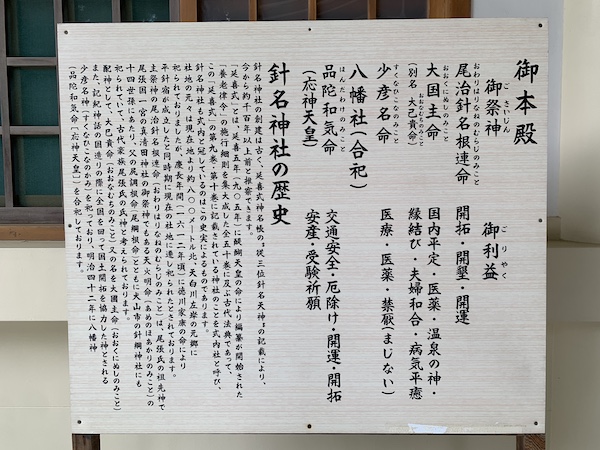 御本殿
御祭神 御利益
ごさいじん ごりやく
尾治針名根連命 開拓・開墾・開運
おわりはりなねのむらじのみこと
大国主命 国内平定・医薬・温泉の神・
おおくにぬしのみこと
(別名 大己貴命) 縁結び・夫婦和合・病気平癒
おおなむちのみこと
少彦名命 医療・医薬・禁厭(まじない)
すくなひこなのみこと
八幡社(合祀)
品陀和気命 交通安全・厄除け・開運・開拓
ほんだわけのみこと
(応神天皇) 安産・受験祈願
針名神社の歴史
針名神社の創建は古く、延喜式神名帳の『従三位針名天神』の記載により、
今から約千百年以上前と推察できます。
『延喜式』では、延喜五年(九〇五年)に醍醐天皇の命により編纂が開始された
『養老律令』の施行細則を集大成した全五十巻に及ぶ古代法典であって、
この『延喜式』の第九巻・第十巻に記載されている神社のことを式内社と呼び、
針名神社も式内と冠しているのはこの史実によるものであります。
社地の元々は現在地より約八〇〇メートル北、天白川左岸の元郷に
祀られておりましたが、慶長年間(一六一二年頃)に徳川家康の命により
平針宿が成立したと同時期に現在の社地に遷し祀られたとされております。
主祭神の尾治針名根連命(おわりはりなねのむらじのみこと)は、尾張氏の祖先神で
尾張国一宮の真清田神社の御祭神でもある天火明命(あめのほあかりのみこと)の
十四世孫にあたり、父の尻調根命(尾綱根命)とともに犬山市の針綱神社にも
祀られていて、古代豪族尾張氏の氏神と考えられております。
配神として、大己貴命(おおなむちのみこと)又の名を大國主命(おおくにぬしのみこと)
また、記紀神話の国造りの際に全国を回って国土開拓を協力した神とされる
少彦命神(すくなひこなのかみ)を祀っており、明治四十二年に八幡神
(品陀和気命〔応神天皇〕)を合祀しております。